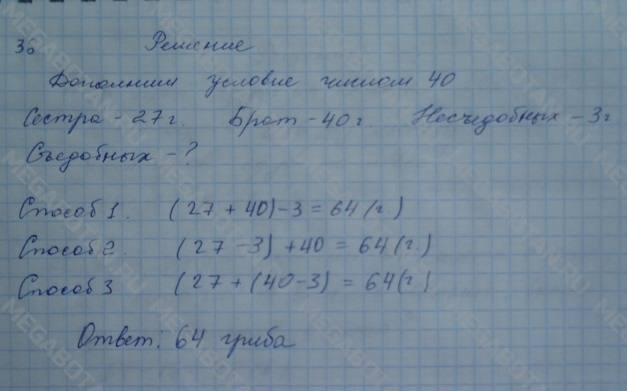 36 Решение
Дополним условие числом 40
Сестра - 27 г. Брат - 40 г. Несъедобных - 3 г
Съедобных - ?
Способ 1. (27 + 40) - 3 = 64 (г.)
Способ 2 (27 - 3) + 40 = 64 (г.)
Способ 3 (27 + (40 - 3) = 64 (г)
Ответ: 64 гриба
MEGABOTAN.RU